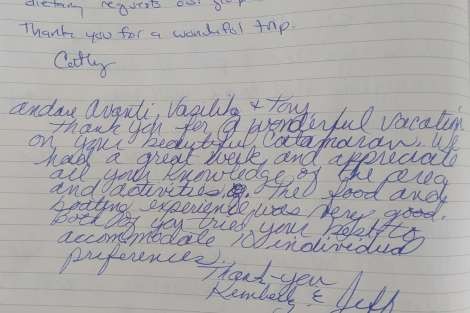 dietary requests our group
Thank you for a wonderful trip.
Cathy
andare avanti, Vasilik &
Thank you for a wonderful vacation
on your beautiful catamaran. We
had a great week and appreciate
all your knowledge of the area
and activities. The food and
boating experience was very good.
Both of you tried your best to
accommodate 10 individual
preferences.
Thank-you
Kimberly & Jeff